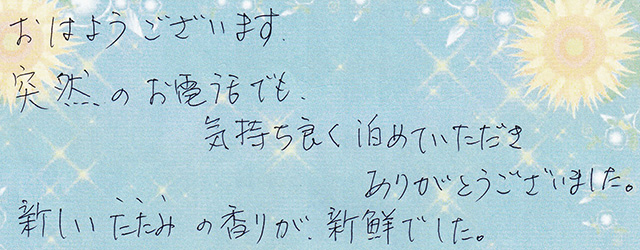 おはようございます.
突然のお電話でも、
気持ち良く泊めていただき
ありがとうございました。
新しいたたみの香りが、新鮮でした。